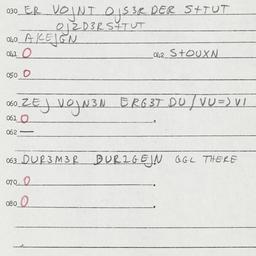 030 ER VOJNT OJS3R DER S+TUT
OJZD3RS+TUT
040 AKEJGN
041 0 042 S+OUXN
050 0
060 ZEJ VOJN3N ERG3T DU/VU=>VI
061 0
062 —
063 DUR3M3R DURIGEJN GGL THERE
070 0
080 0